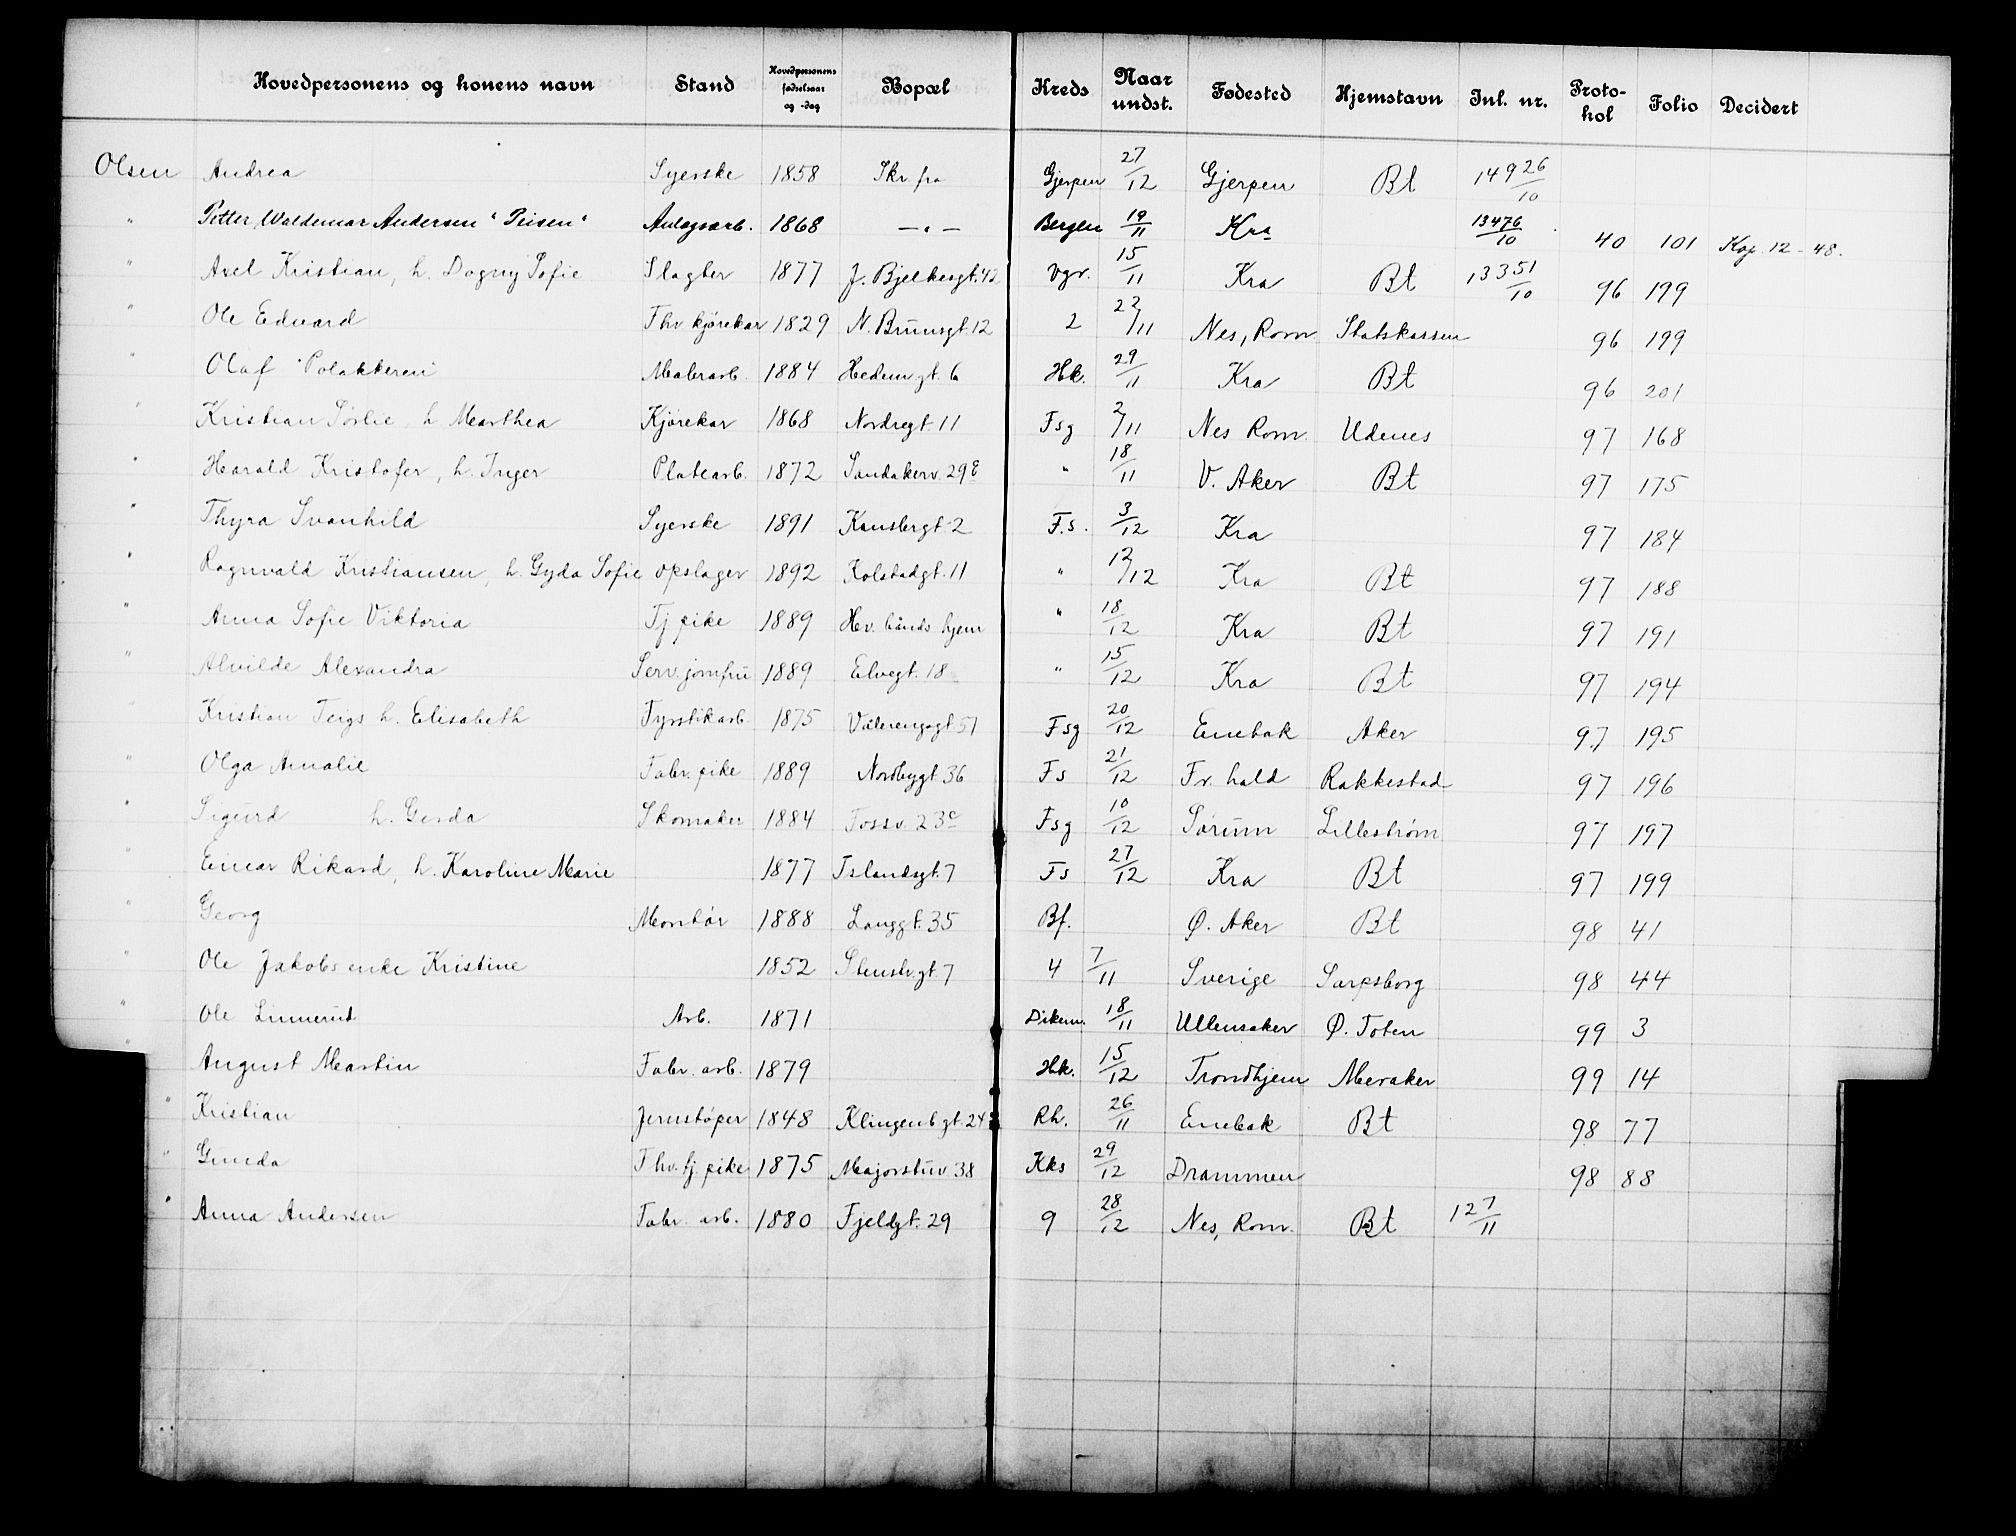 Hovedpersonens og konens navn Stand Hovedpersonens fødselsaar og -dag Bopæl Kreds Naar undst. Fødested Hjemstavn Inl. nr. Protokol Folio Decidert
Olsen Andrea Syerske 1858 Skr. fra Gjerpen 27/12 Gjerpen Bt 14926/10
" Petter Waldemar Andersen "Peisen" Anlagsarb. 1868 — " — Bergen 19/11 Kra 13476/10 40 101 Kop. 12 - 48.
" Axel Kristian, h. Dagny Sofie Slagter 1877 J. Bjelkesgt. 42 Vgr. 15/11 Kra Bt 13351/10 96 199
" Ole Edvard Fhv. kjørekar 1829 N. Brunsgt. 12 2 22/11 Nes, Rom. Statskassen 96 199
" Olaf "Polakkeren" Malerarb. 1884 Hedem.gt. 6 Hk. 29/11 Kra Bt 96 201
" Kristian Sørlie, h. Marthea Kjørekar 1868 Nordregt. 11 Fsg 2/11 Nes Rom. Udenes 97 168
" Harald Kristofer, h. Inger Platearb. 1872 Sandakerv. 29E " 18/11 V. Aker Bt 97 175
" Thyra Svanhild Syerske 1891 Kansbergt. 2 F.s. 3/12 Kra 97 184
" Ragnvald Kristiansen, h. Gyda Sofie Opslager 1892 Kolstadgt. 11 " 12/12 Kra Bt 97 188
" Anna Sofie Viktoria Tj. pike 1889 Hv. bånds hjem " 18/12 Kra Bt 97 191
" Alvilde Alexandra Serv. jomfru 1889 Elvegt. 18 " 15/12 Kra Bt 97 194
" Kristian Teigs h. Elisabeth Fyrstikarb. 1875 Vålerengagt. 51 Fsg 20/12 Enebak Aker 97 195
" Olga Amalie Fabr. pike 1889 Nordbygt. 36 Fs 21/12 Fr. hald Rakkestad 97 196
" Sigurd h. Gerda Skomaker 1884 Fossv. 23c Fsg 10/12 Sørum Lillestrøm 97 197
" Einar Rikard, h. Karoline Marie 1877 Islandsgt. 7 Fs 27/12 Kra Bt 97 199
" Georg Montør 1888 Langgt. 35 Bf. Ø. Aker Bt 98 41
" Ole Jakobs enke Kristine 1852 Stensbv.gt. 7 4 7/11 Sverige Sarpsborg 98 44
" Ole Linnerud Arb. 1871 Dikem. 18/11 Ullensaker Ø. Toten 99 3
" August Martin Fabr. arb. 1879 Hk. 15/12 Trondhjem Meraker 99 14
" Kristian Jernstøper 1848 Klingenb.gt. 24 Rh. 26/11 Enebak Bt 98 77
" Gunda Fhv. tj. pike 1875 Majorstuv 38 Kks 29/12 Drammen 98 88
" Anna Andersen Fabr. arb. 1880 Fjeldgt. 29 9 28/12 Nes, Rom. Bt 127/11